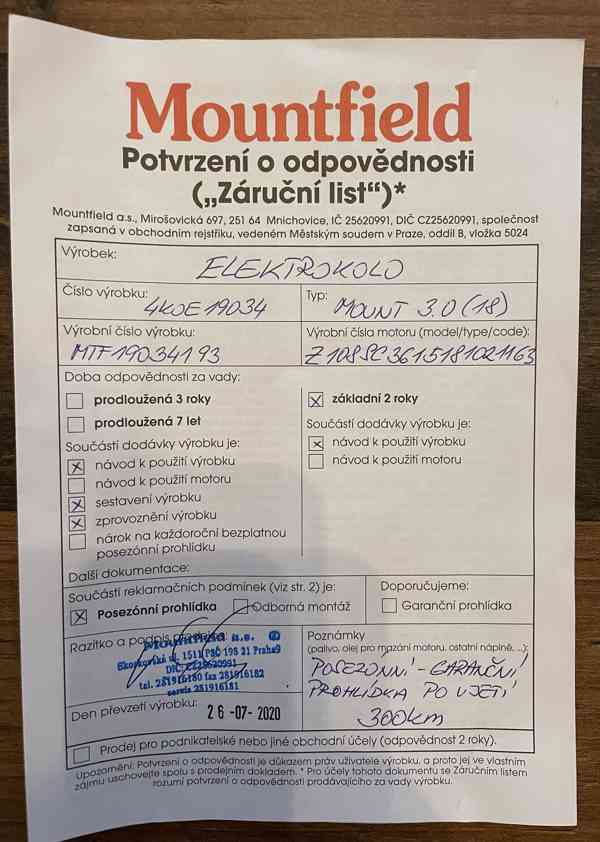 Mountfield
Potvrzení o odpovědnosti
(„Záruční list“)*
Mountfield a.s., Mirošovická 697, 251 64 Mnichovice, IČ 25620991, DIČ CZ25620991, společnost
zapsaná v obchodním rejstříku, vedeném Městským soudem v Praze, oddíl B, vložka 5024
Výrobek: ELEKTROKOLO
Číslo výrobku: 4KOE19034
Typ: MOUNT 3.0 (18)
Výrobní číslo výrobku:
MTF19034193
Výrobní čísla motoru (model/type/code):
Z108SC3615181021163
Doba odpovědnosti za vady:
prodloužená 3 roky
prodloužená 7 let
Součástí dodávky výrobku je:
návod k použití výrobku
návod k použití motoru
sestavení výrobku
zprovoznění výrobku
nárok na každoroční bezplatnou
posezónní prohlídku
základní 2 roky
Součástí dodávky výrobku je:
návod k použití výrobku
návod k použití motoru
Další dokumentace:
Součástí reklamačních podmínek (viz str. 2) je:
Posezónní prohlídka
Odborná montáž
Doporučujeme:
Garanční prohlídka
Razítko a podpis
Mountfield a.s.
1511 PSČ 198 21 Praha9
DIČ: CZ25620991
tel. 281916180 fax 281916182
servis 281916181
Den převzetí výrobku: 26 -07- 2020
Poznámky
(palivo, olej pro mazání motoru, ostatní náplně, ...):
POSEZONNÍ - GARANČNÍ
PROHLÍDKA PO UJETÍ
300km
Prodej pro podnikatelské nebo jiné obchodní účely (odpovědnost 2 roky).
Upozornění: Potvrzení o odpovědnosti je důkazem práv uživatele výrobku, a proto jej ve vlastním
zájmu uschovejte spolu s prodejním dokladem. * Pro účely tohoto dokumentu se Záručním listem
rozumí potvrzení o odpovědnosti prodávajícího za vady výrobku.